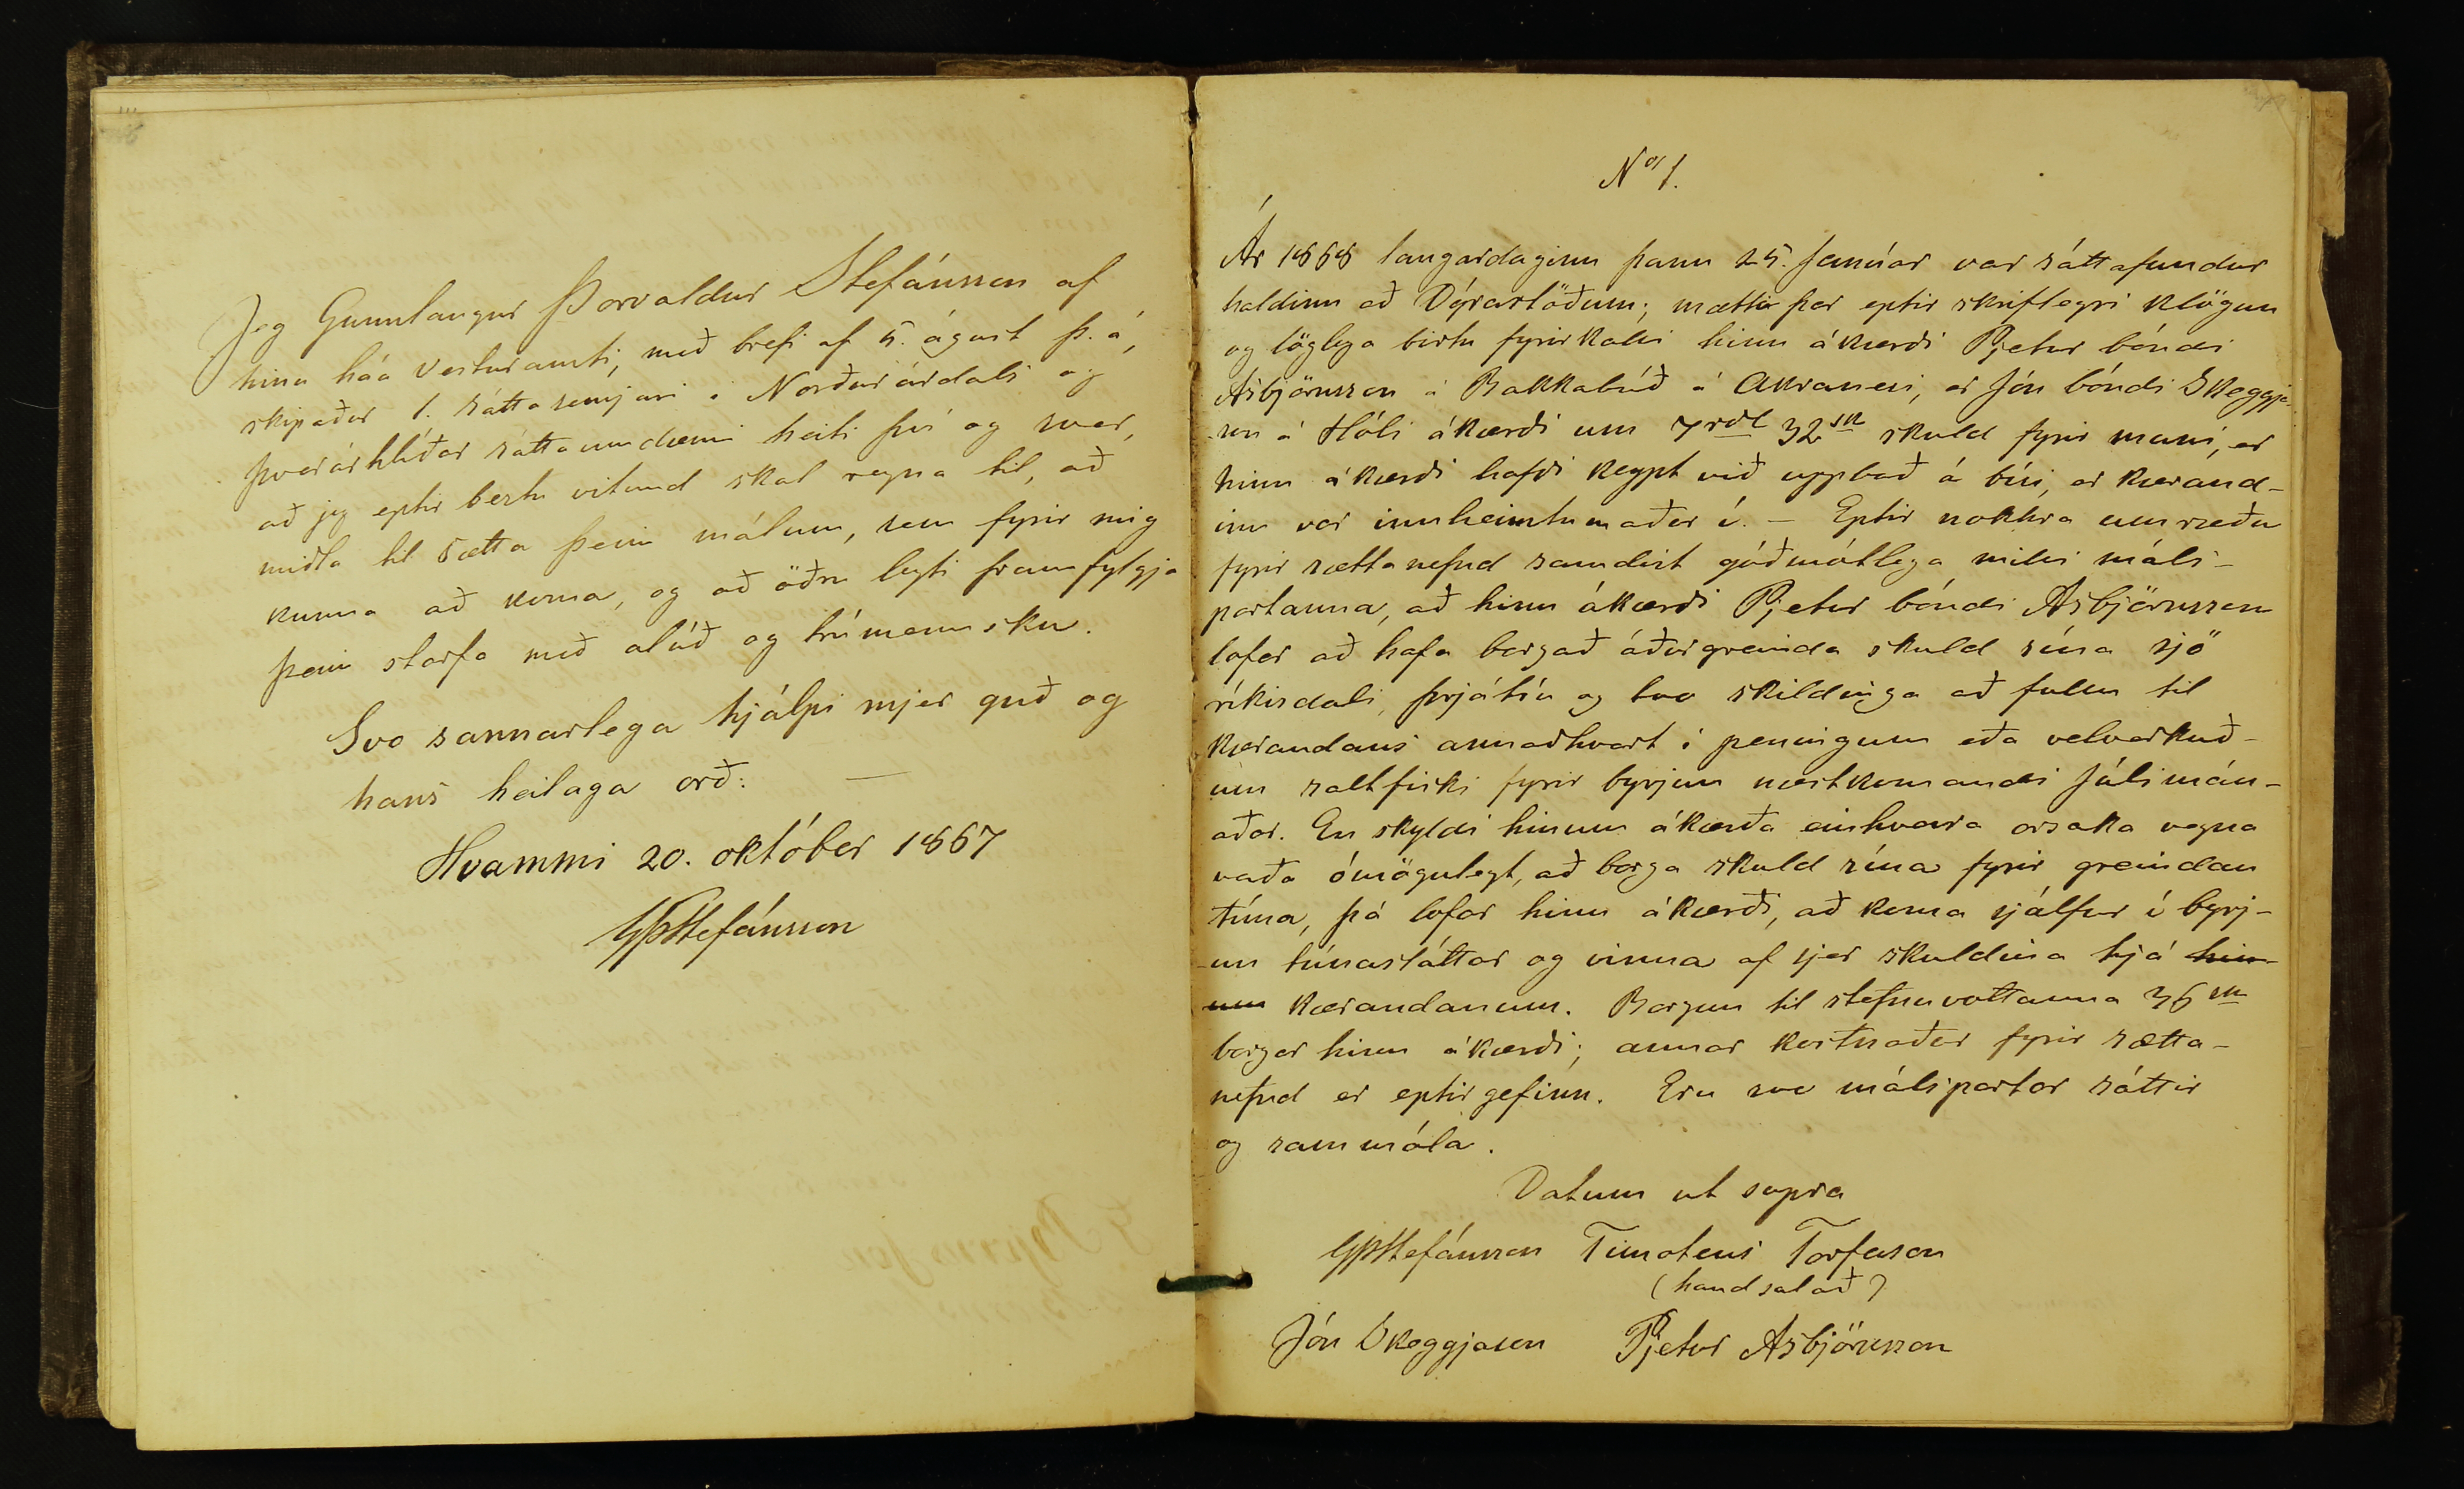 Jeg Gunnlaugur Þorvaldur Stefánsson af
hinu háa Vesturamti, með brefi af 5. ágúst þ. á,
skipaður 1. sáttasemjari i Norðurárdals og
Þverárhlíðar sáttaumdæmi heiti því og sver,
að jeg eptir beztu vitund skal reyna til, að
miðla til sætta þeim málum, sem fyrir mig
kunna að koma, og að öðru leyti framfylgja
þeim starfa með alúð og trúmennsku.
Svo sannarlega hjálpi mjer guð og
hans heilaga orð: —
Hvammi 20. október 1867
GÞStefánsson
No 1.
Ár 1868 laugardaginn þann 25. Janúar var sáttafundur
haldinn að Dýrastöðum; mætti þar eptir skriflegri klögun
og löglega birtu fyrirkalli hinn ákærði Pjetur bóndi
Asbjörnsson á Bakkabúð á Akranesi, er Jón bóndi Skeggja-
son á Hóli ákærði um 7 rdl 32 sk skuld fyrir muni, er
hinn ákærði hafði keypt við uppboð á búi, er kærand-
inn var innheimtumaður í. — Eptir nokkra umræðu
fyrir sættanefnd samdist góðmótlega milli máls-
partanna, að hinn ákærði Pjetur bóndi Asbjörnsson
lofar að hafa borgað áðurgreinda skuld sína sjö
ríkisdali, þrjátíu og tvo skildinga að fullu til
kærandans annaðhvort í peningum eða velverkuð-
um saltfiski fyrir byrjun næstkomandi Júlimán-
aðar. En skyldi hinum ákærða einhverra orsaka vegna
verða ómögulegt, að borga skuld sína fyrir greindan
tíma, þá lofar hinn ákærði, að koma sjálfur í byrj-
un túnasláttar og vinna af sjer skuldina hjá hin-
um kærandanum. Borgun til stefnuvottanna 36 sk
borgar hinn ákærði; annar kostnaður fyrir sætta-
nefnd er eptirgefinn. Eru svo málspartar sáttir
og sammála.
Datum ut supra
GÞStefánsson Timoteus Torfason
(handsalað)
Jón Skeggjason Pjetur Asbjörnsson